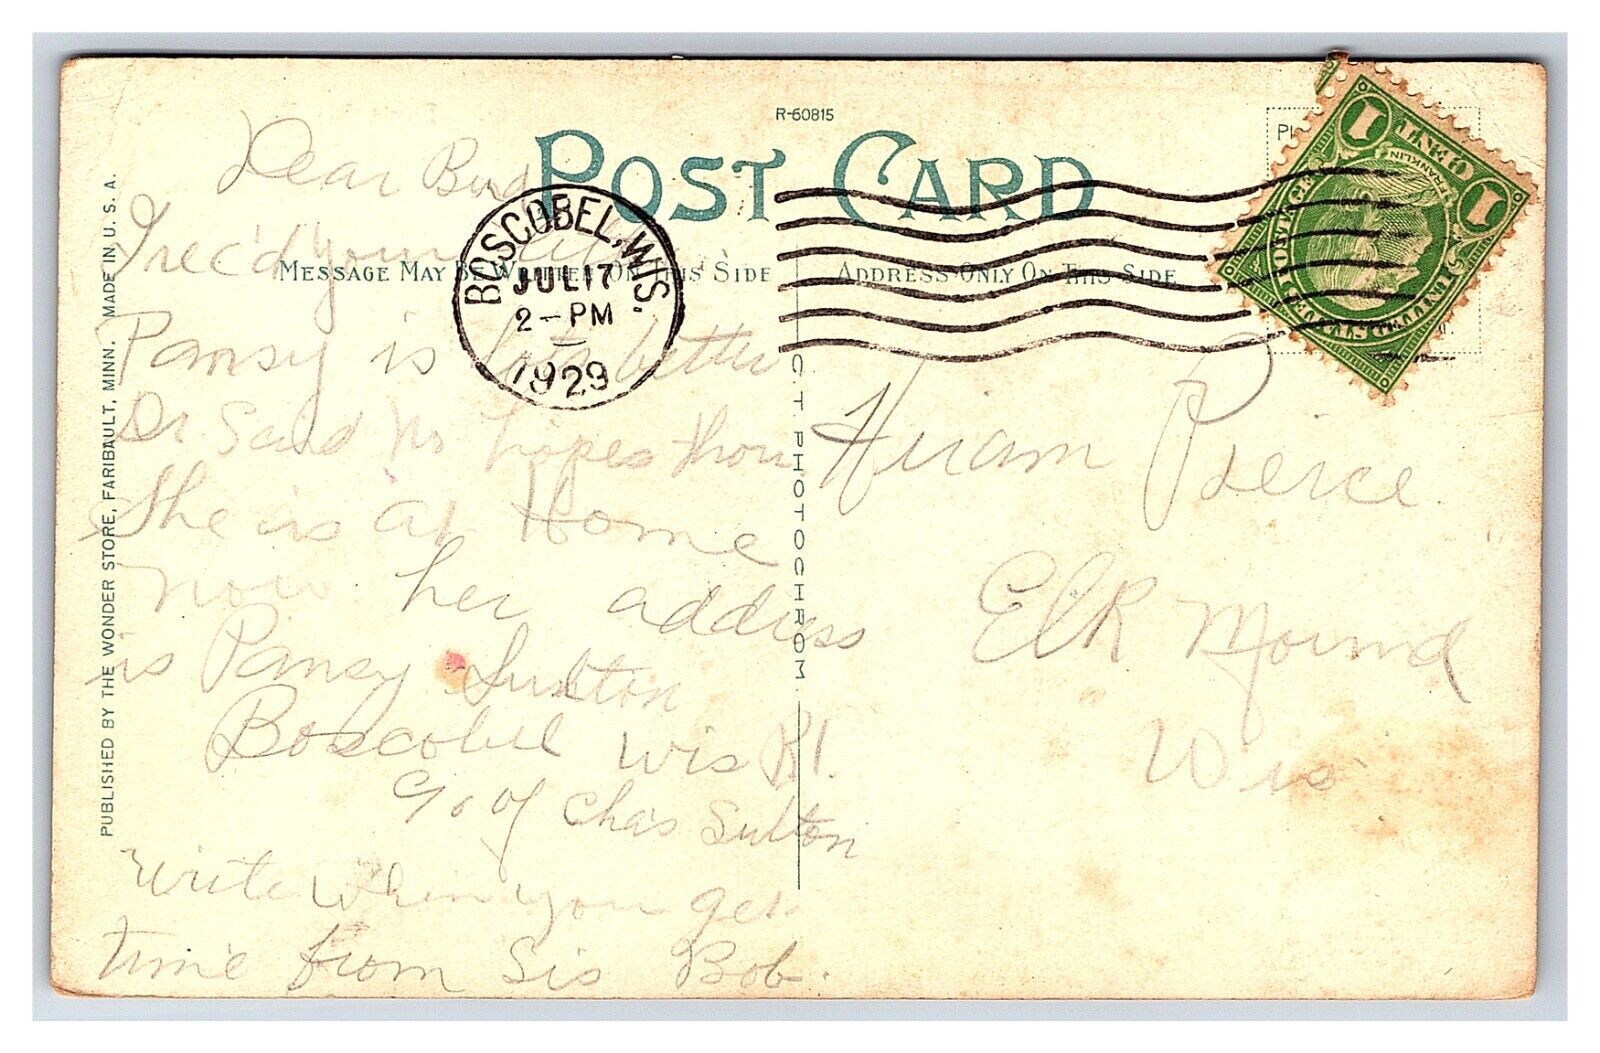 R-60815
POST CARD
MESSAGE MAY BE WRITTEN ON THIS SIDE
ADDRESS ONLY ON THIS SIDE
PUBLISHED BY THE WONDER STORE, FARIBAULT, MINN. MADE IN U. S. A.
C. T. PHOTOCHROM
BOSCOBEL, WIS.
JUL 17
2-PM
1929
FRANKLIN
1 CENT 1
Dear Bud
I rec'd your
Pansy is lots better
Dr Said No hopes
She is at Home
now her address
is Pansy Sutton
Boscobel Wis R1.
c/o of Chas Sutton
Write when you get
time from Sis Bob.
Hiram Pierce
Elk Mound
Wis